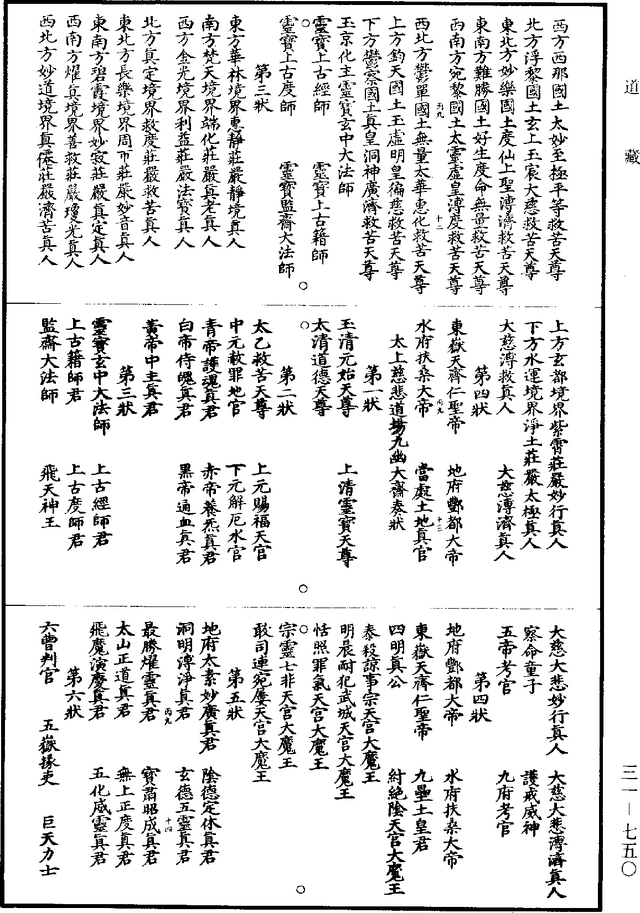 道藏
西方西那國土太妙至極平等救苦天尊
北方浮黎國土玄上玉宸大慈救苦天尊
東北方妙樂國土度仙上聖溥濟救苦天尊
東南方難勝國土好生度命無量救苦天尊
西南方宛黎國土太靈虛皇溥度救苦天尊
丙九 十二
西北方鬱單國土無量太華惠化救苦天尊
上方鈞天國土玉虛明皇徧慈救苦天尊
下方鬱察國土真皇洞神廣濟救苦天尊
玉京化主靈寶玄中大法師
靈寶上古經師 靈寶上古籍師
靈寶上古度師 靈寶監齋大法師
第三狀
東方華林境界惠靜莊嚴靜境真人
南方梵天境界端化莊嚴真老真人
西方金光境界利益莊嚴法寶真人
北方真定境界救度莊嚴救苦真人
東北方長樂境界周帀莊嚴妙音真人
東南方碧霄境界妙寂莊嚴真定真人
西南方耀真境界善救莊嚴瓊光真人
西北方妙道境界真僊莊嚴濟苦真人
上方玄都境界紫霄莊嚴妙行真人
下方水運境界淨土莊嚴太極真人
大慈溥救真人 大慈溥濟真人
第四狀
東嶽天齊仁聖帝 地府酆都大帝
丙九 十三
水府扶桑大帝 當處土地真官
太上慈悲道場九幽大齋奏狀
第一狀
玉清元始天尊 上清靈寶天尊
太清道德天尊
第二狀
太乙救苦天尊 上元賜福天官
中元赦罪地官 下元解厄水官
青帝護魂真君 赤帝養炁真君
白帝侍魄真君 黑帝通血真君
黃帝中主真君
第三狀
靈寶玄中大法師 上古經師君
上古籍師君 上古度師君
監齋大法師 飛天神王
大慈大悲妙行真人 大慈大悲溥濟真人
察命童子 護戒威神
五帝考官 九府考官
第四狀
地府酆都大帝 水府扶桑大帝
東嶽天齊仁聖帝 九壘土皇君
四明真公 紂絕陰天官大魔王
泰殺諒事宗天官大魔王
明晨耐犯武城天官大魔王
恬照罪氣天官大魔王
宗靈七非天官大魔王
敢司連宛屢天官大魔王
第五狀
地府太素妙廣真君 陰德定休真君
洞明溥淨真君 玄德五靈真君
丙九 十四
最勝耀靈真君 寶肅昭成真君
太山正道真君 無上正度真君
飛魔演慶真君 五化威靈真君
第六狀
六曹判官 五嶽掾吏 巨天力士
三一－七五〇